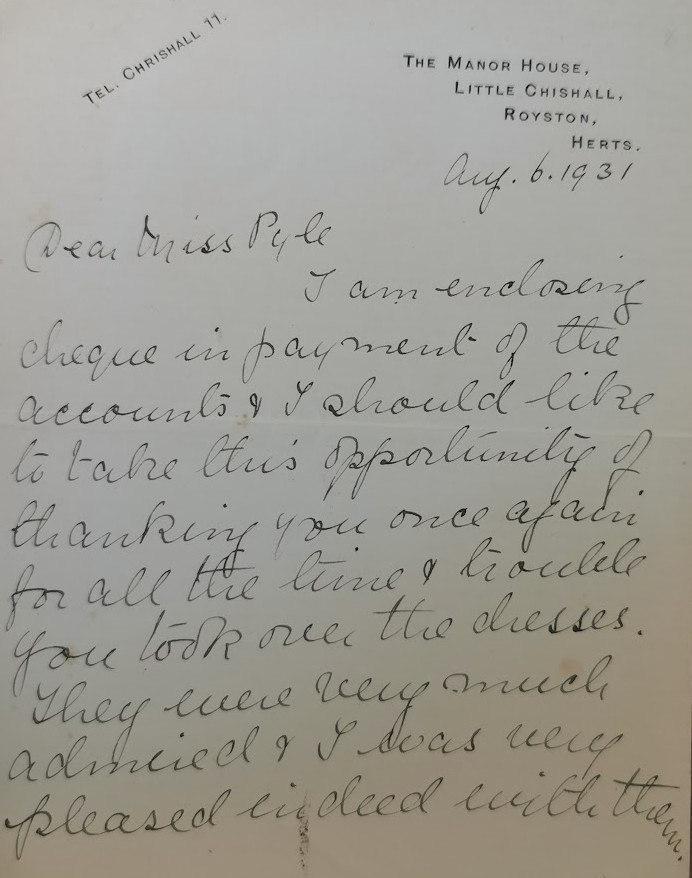 TEL. CHRISHALL 11.
THE MANOR HOUSE,
LITTLE CHISHALL,
ROYSTON,
HERTS.
Aug. 6. 1931
Dear Miss Pyle
I am enclosing
cheque in payment of the
accounts & I should like
to take this opportunity of
thanking you once again
for all the time & trouble
you took over the dresses.
They were very much
admired & I was very
pleased indeed with them.